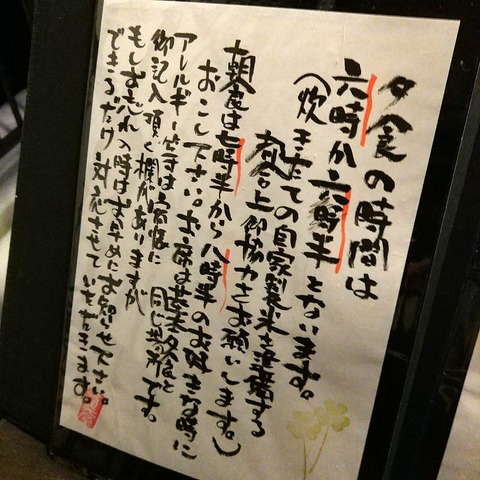 夕食の時間は
六時か六時半となります。
（炊きたての自家製米を準備する
都合上御協力をお願いします。）
朝食は七時半から八時半のお好きな時に
おこし下さい。お席は基本夕食と
アレルギー等は宿帳に 同じ場所です。
御記入頂く欄がありますが
もしお忘れの時はお早めにお知らせ下さい。
できるだけ対応させていただきます。